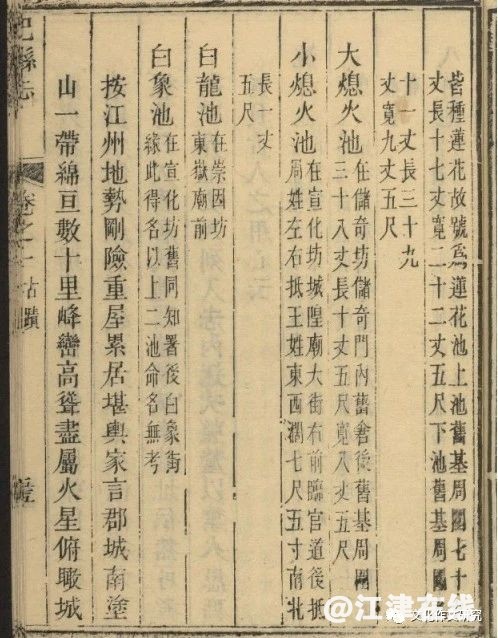 皆種蓮花故號為蓮花池上池舊基周圍七十
丈長十七丈寬二十二丈五尺下池舊基周圍
十一丈長三十九
丈寬九丈五尺
大熄火池 在儲奇坊儲奇門內舊倉後舊基周圍
三十八丈長十丈五尺寬八丈五尺
小熄火池 在宣化坊城隍廟大街右前臨官道後抵
周姓左右抵王姓東西濶七尺五寸南北
長一丈
五尺
白龍池 在崇因坊
東嶽廟前
白象池 在宣化坊舊同知署後白象街
緣此得名以上二池命名無考
按江州地勢剛險重屋累居堪輿家言郡城南塗
山一帶綿亘數十里峰巒高聳盡屬火星俯瞰城
巴縣志 卷之一 古蹟
@江津在线